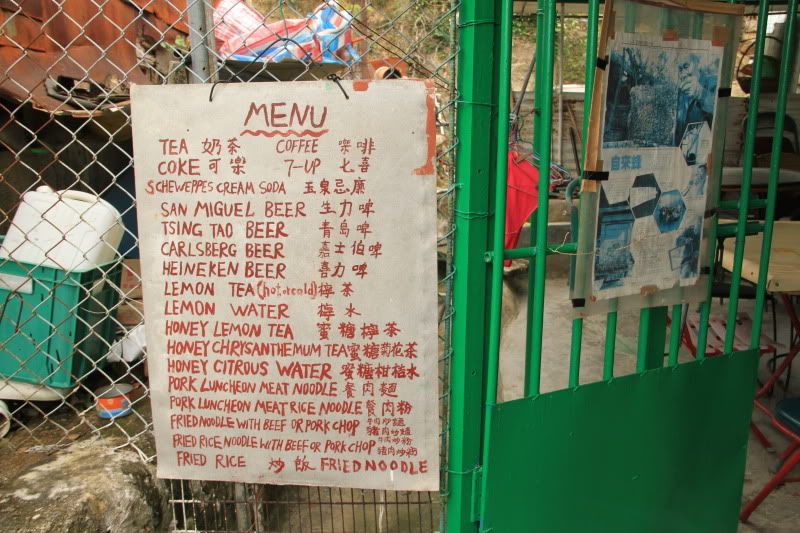 MENU
TEA 奶茶 COFFEE 咖啡
COKE 可樂 7-UP 七喜
SCHEWEPPES CREAM SODA 玉泉忌廉
SAN MIGUEL BEER 生力啤
TSING TAO BEER 青島啤
CARLSBERG BEER 嘉士伯啤
HEINEKEN BEER 喜力啤
LEMON TEA (hot or cold) 檸茶
LEMON WATER 檸水
HONEY LEMON TEA 蜜糖檸茶
HONEY CHRYSANTHEMUM TEA 蜜糖菊花茶
HONEY CITROUS WATER 蜜糖柑桔水
PORK LUNCHEON MEAT NOODLE 餐肉麵
PORK LUNCHEON MEAT RICE NOODLE 餐肉粉
FRIED NOODLE WITH BEEF OR PORK CHOP 牛肉炒麵 豬肉炒麵
FRIED RICE NOODLE WITH BEEF OR PORK CHOP 牛肉炒粉 豬肉炒粉
FRIED RICE 炒飯 FRIED NOODLE
自來蜂